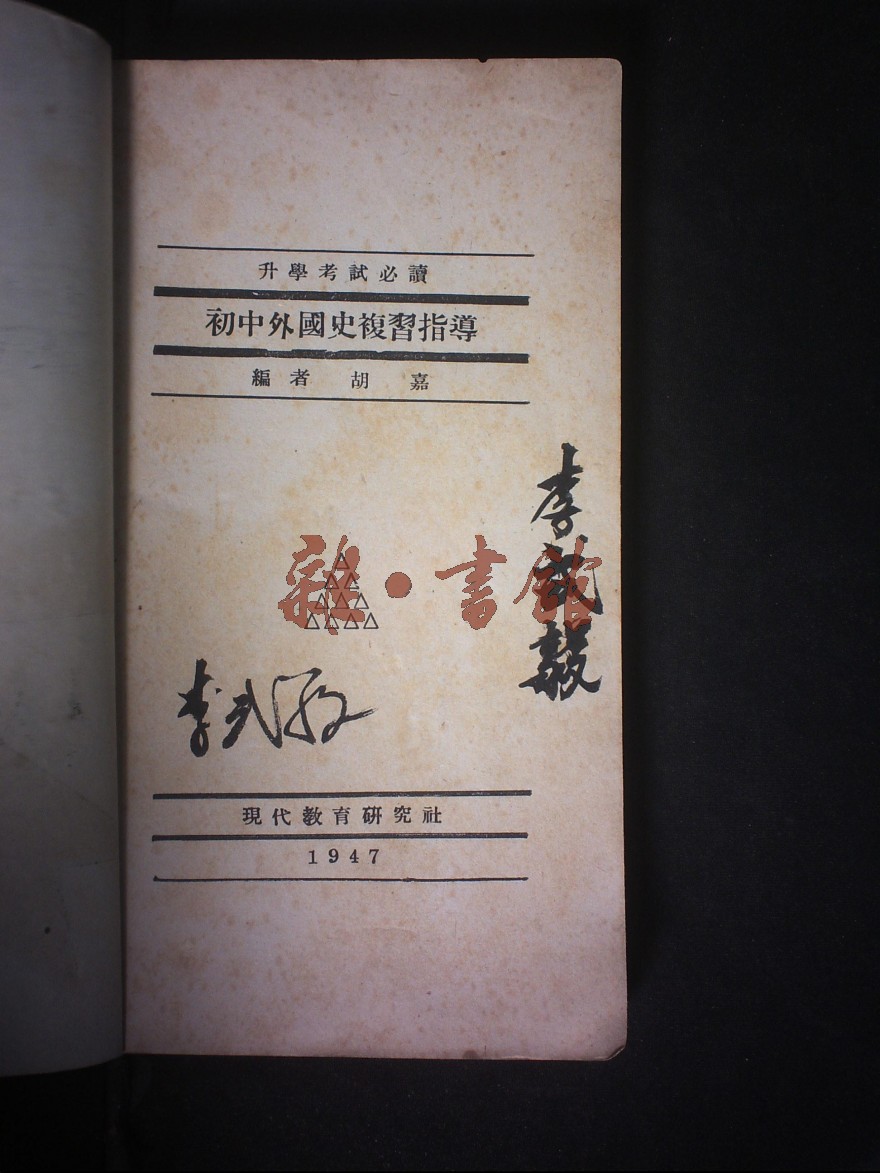 升學考試必讀
初中外國史複習指導
編者 胡嘉
雜·書館
李武毅
李武毅
現代教育研究社
1947